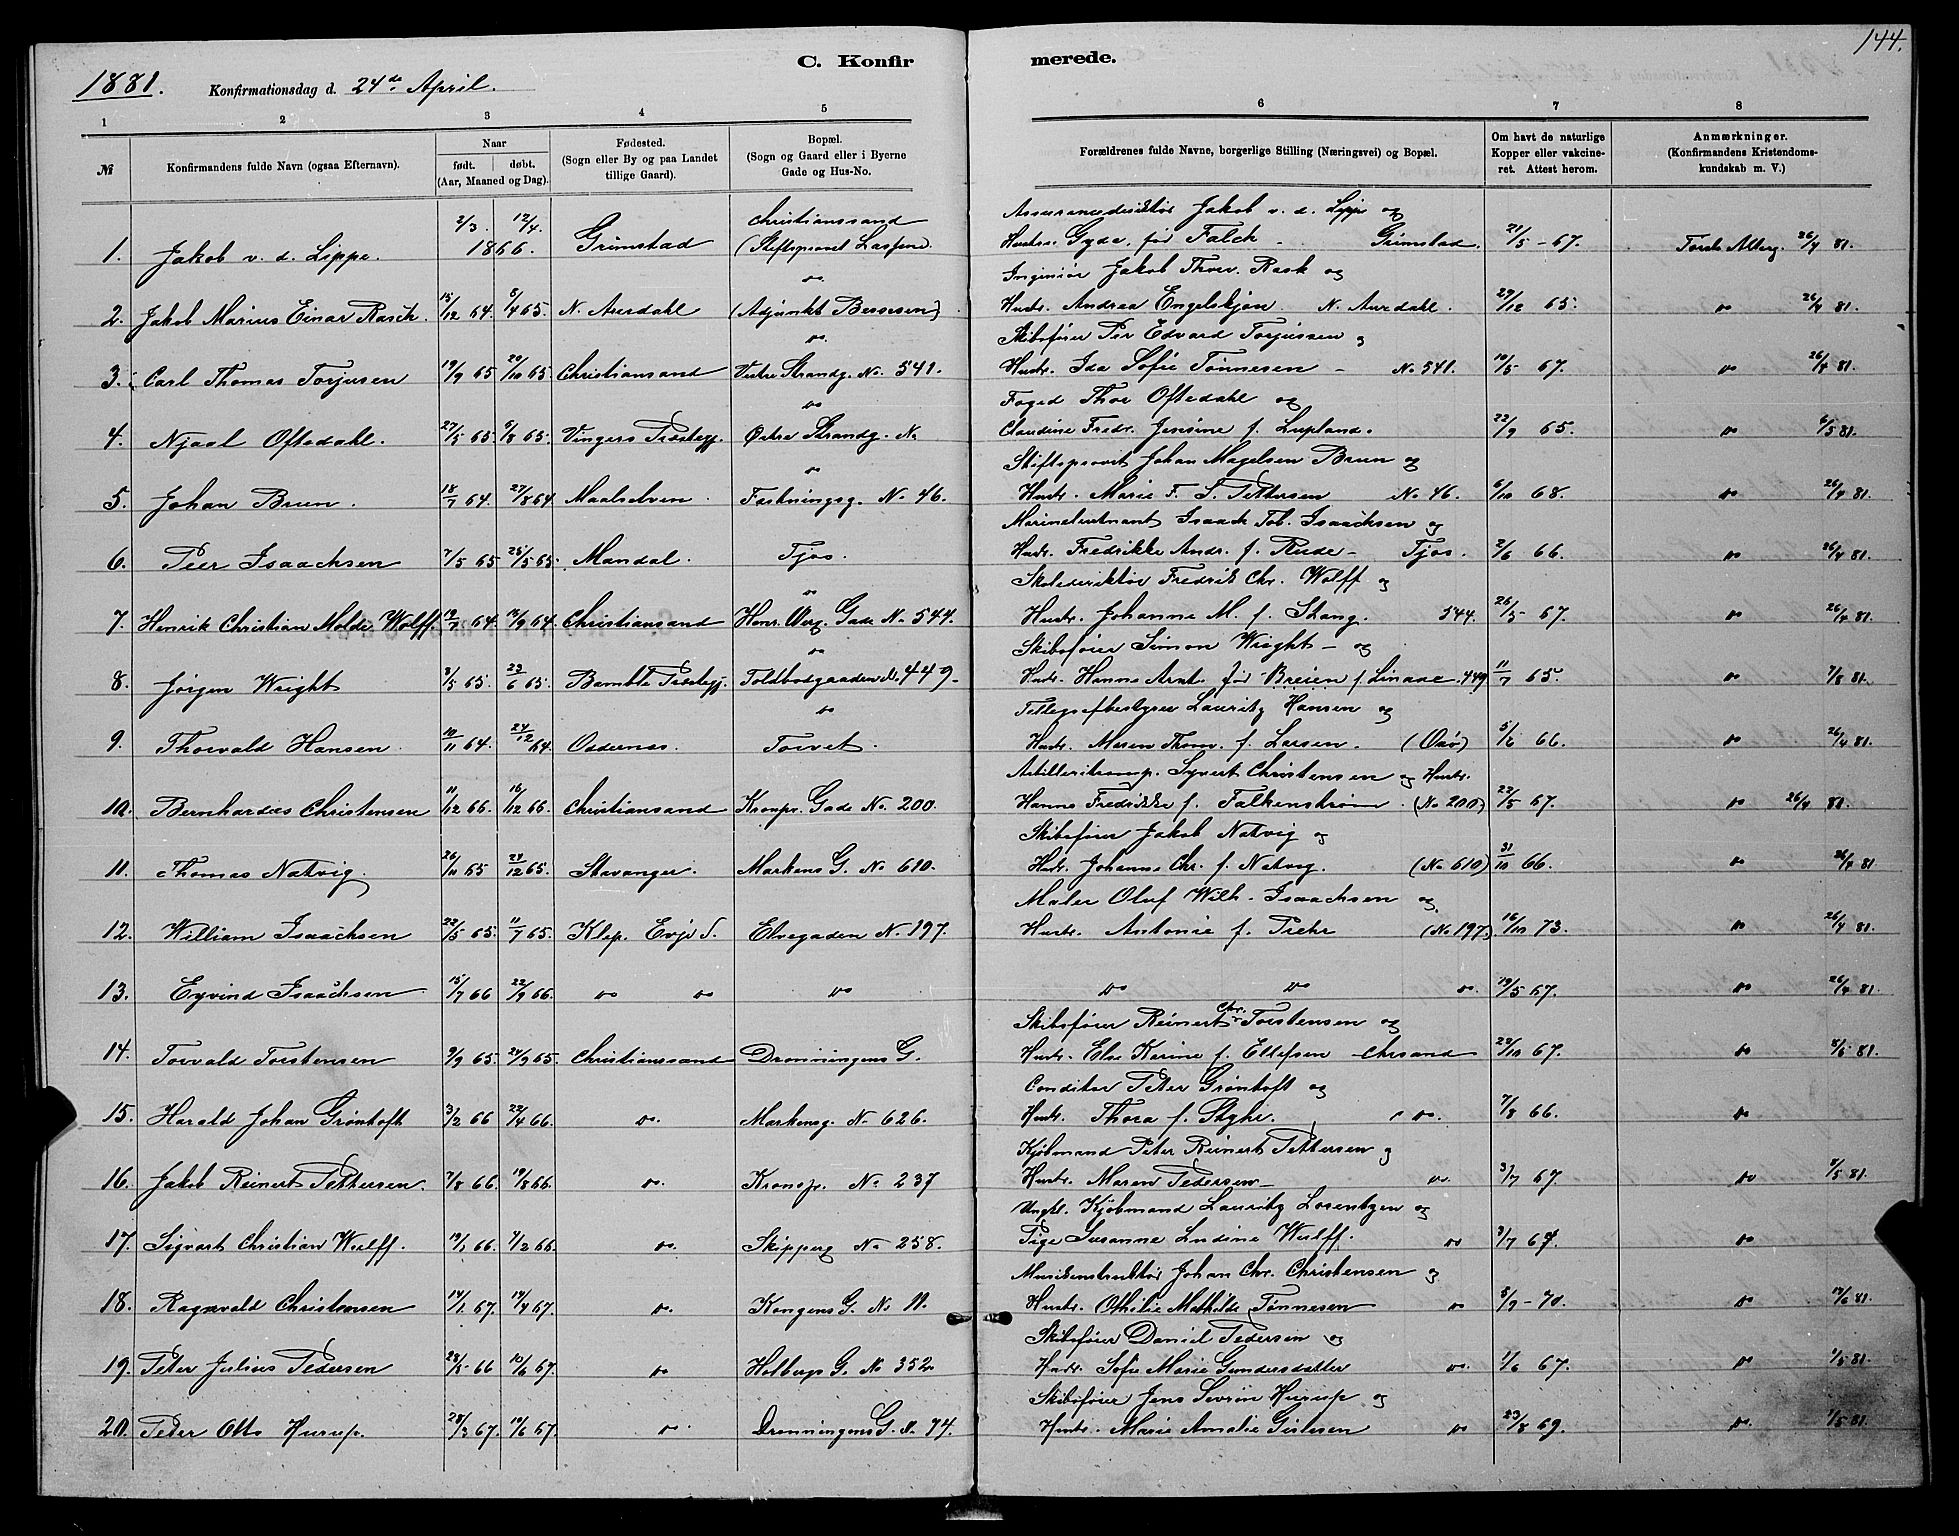 144.
C. Konfir merede.
1881. Konfirmationsdag d. 24de April.
1 2 3 4 5 6 7 8
№
Konfirmandens fulde Navn (ogsaa Efternavn).
Naar
født. døbt.
(Aar, Maaned og Dag).
Fødested.
(Sogn eller By og paa Landet
tillige Gaard).
Bopæl.
(Sogn og Gaard eller i Byerne
Gade og Hus-No.
Forældrenes fulde Navne, borgerlige Stilling (Næringsvei) og Bopæl.
Om havt de naturlige
Kopper eller vakcine-
ret. Attest herom.
Anmærkninger.
(Konfirmandens Kristendoms-
kundskab m. V.)
2/3. 12/4. Christianssand Assurancedirektør Jakob v. d. Lippe og
1. Jakob v. d. Lippe. 1866. Grimstad (Stiftsprovst Hustru Gyda, før Falck - Grimstad. 21/5 - 67. 26/4 81.
do Ingeniør Jakob Thor. Rask og
2. Jakob Marius Einar Rasch. 15/12 64. 8/4 65. N. Aurdahl (Adjunkt Bessesen) Hustr. Andrea Engelskjøn N. Aurdahl. 29/12 65. do 26/4 81.
do. Skibsfører Per Edvard Torjussen og
3. Carl Thomas Torjusen 19/9 65 20/10 65. Christiansand Vestre Strandg. No. 541. Hustr. Ida Sofie Tønnesen - No 541. 10/5 67. do 26/4 81.
do Foged Thor Oftedahl og
4. Njaal Oftedahl. 27/5 65. 9/8 65. Vingers Præstegj. Østre Strandg. No Claudine Fredr. Jensine f. Lupland. 22/9 65. do 6/5 81.
do Stiftsprovst Johan Magelsen Brun og
5. Johan Brun. 18/7 64. 27/8 64. Maalselven. Fæstningsg. No 46. Hustr. Marie F. S. Pettersen No 46. 6/10 68. do 26/4 81.
Marinelieutnant Isaach Tob. Isaachsen og
6. Peer Isaachsen 7/5 65 25/5 65. Mandal. Tjos. Hustr. Fredrikke Andr. f. Rude - Tjos. 2/6 66. do 26/4 81.
do Skoledirektør Fredrik Chr. Wolff og
7. Henrik Christian Molde Wolff. 64. 64. Christiansand Henr. Werg. Gade No 544. Hustr. Johanne M. f. Stang. 544. 26/5 - 67. do 26/4 81.
do Skibsfører Simon Wright - og
8. Jørgen Wright 3/5 65. 23/6 65. Bamble Præstegj. Toldbodgaden No. 449. Hustr. Hanne Arnt. før Breien f. Linaae. 449 11/7 65. do 7/8 81.
do Tellegrafbestyrer Lauritz Hansen og
9. Thorvald Hansen. 10/11 64. 24/12 64. Oddernes. Torvet. Hustr. Maren Thom. f. Larsen. 5/6 66. do 26/4 81.
Artillerikomp. Syvert Christensen og Hustr.
10. Bernhardus Christensen 11/12 66. 16/12 66. Christiansand Kronpr. Gade No. 200. Hanne Fredrikke f. Falkenstrøm. (No 200) 22/5 67. do 26/4 81.
Skibsfører Jakob Natvig og
11. Thomas Natvig. 26/11 65 24/12 65. Stavanger. Markens G. No 610. Hustr. Johanne Chr. f. Natvig. (No 610) 31/10 66. do 26/4 81
Maler Oluf Wilh. Isaachsen og
12. William Isaachsen 22/5 65. 11/7 65. Klep. Evje S. Elvegaden No 197. Hustr. Antonie f. Prehr (No 197). 16/10 73. do 26/4 81.
13. Eyvind Isaachsen 15/7 66 22/9 66. do do do do do do. 19/5 67. do 26/4 81.
Skibsfører Reinert Chr. Torstensen og
14. Torvald Torstensen 9/9 65. 24/9 65. Christianssand Dronningens G. Hustr. Else Karine f. Ellefsen - Chrsand 22/10 67. do 8/5 81.
Conditor Peter Grøntoft og
15. Harald Johan Grøntoft 3/2 66 22/4 66. do. Markensg. No 626. Hustr. Thora f. Styhr. do. 7/8 66. do
Kjøbmand Peter Reinert Pettersen og
16. Jakob Reinert Pettersen. 7/8 66. 19/8 66. do. Kronspr. No 237 Hustr. Maren Pedersen - do. 3/7 67. do 8/5 81.
Ungk. Kjøbmand Lauritz Lorentzen og
17. Sigvart Christian Wulff. 19/1 66. 7/2 66. do. Skipperg No 258. Pige Susanne Ludine Wulff. do 3/7 67. do
Musikinstruktør Johan Chr. Christensen og
18. Ragnvald Christensen 14/1 67. 19/4 67. do. Kongens G. No 11. Hustr. Othilie Mathilde Tønnesen do 8/9 - 70. do 19/6 81.
Skibsfører Daniel Pedersen og
19. Peter Julius Pedersen 28/5 - 66 10/6 67. do Holbergs G. No 352. Hustr. Sofie Marie Gundersdatter do. 1/6 67. do 1/5 81.
Skibsfører Jens Severin Hurup og
20. Peter Otto Hurup. 28/3 67. 19/6 67. do Dronningens G. No. 74. Hustr. Marie Amalie Geilesen do 23/8 69. do. 1/5 81.